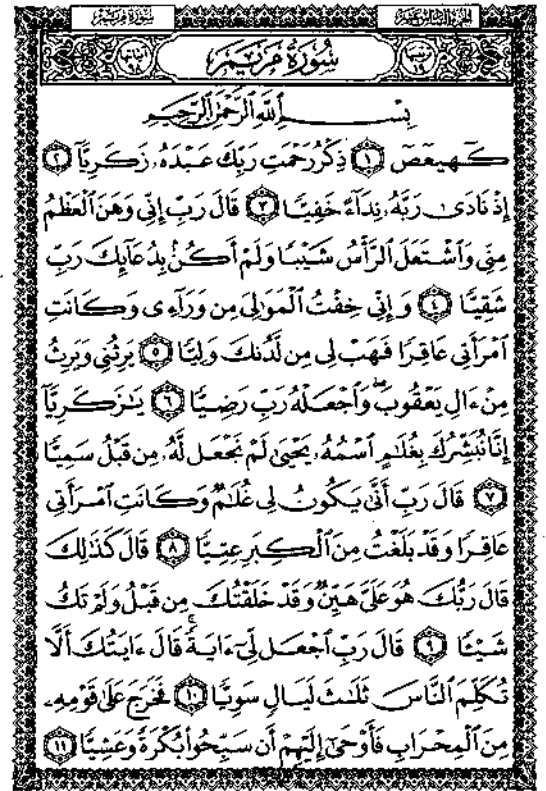 سُورَةُ مَرْيَمَ الجزء السادس عشر
ترتيبها ١٩ سُورَةُ مَرْيَمَ آياتها ٩٨
بِسْمِ ٱللَّهِ ٱلرَّحْمَٰنِ ٱلرَّحِيمِ
كٓهيعٓصٓ ١ ذِكْرُ رَحْمَتِ رَبِّكَ عَبْدَهُۥ زَكَرِيَّآ ٢
إِذْ نَادَىٰ رَبَّهُۥ نِدَآءً خَفِيًّا ٣ قَالَ رَبِّ إِنِّى وَهَنَ ٱلْعَظْمُ
مِنِّى وَٱشْتَعَلَ ٱلرَّأْسُ شَيْبًا وَلَمْ أَكُنۢ بِدُعَآئِكَ رَبِّ
شَقِيًّا ٤ وَإِنِّى خِفْتُ ٱلْمَوَٰلِىَ مِن وَرَآءِى وَكَانَتِ
ٱمْرَأَتِى عَاقِرًا فَهَبْ لِى مِن لَّدُنكَ وَلِيًّا ٥ يَرِثُنِى وَيَرِثُ
مِنْ ءَالِ يَعْقُوبَ ۖ وَٱجْعَلْهُ رَبِّ رَضِيًّا ٦ يَٰزَكَرِيَّآ
إِنَّا نُبَشِّرُكَ بِغُلَٰمٍ ٱسْمُهُۥ يَحْيَىٰ لَمْ نَجْعَل لَّهُۥ مِن قَبْلُ سَمِيًّا
٧ قَالَ رَبِّ أَنَّىٰ يَكُونُ لِى غُلَٰمٌ وَكَانَتِ ٱمْرَأَتِى
عَاقِرًا وَقَدْ بَلَغْتُ مِنَ ٱلْكِبَرِ عِتِيًّا ٨ قَالَ كَذَٰلِكَ
قَالَ رَبُّكَ هُوَ عَلَىَّ هَيِّنٌ وَقَدْ خَلَقْتُكَ مِن قَبْلُ وَلَمْ تَكُ
شَيْـًٔا ٩ قَالَ رَبِّ ٱجْعَل لِّىٓ ءَايَةً ۚ قَالَ ءَايَتُكَ أَلَّا
تُكَلِّمَ ٱلنَّاسَ ثَلَٰثَ لَيَالٍ سَوِيًّا ١٠ فَخَرَجَ عَلَىٰ قَوْمِهِۦ
مِنَ ٱلْمِحْرَابِ فَأَوْحَىٰٓ إِلَيْهِمْ أَن سَبِّحُوا۟ بُكْرَةً وَعَشِيًّا ١١